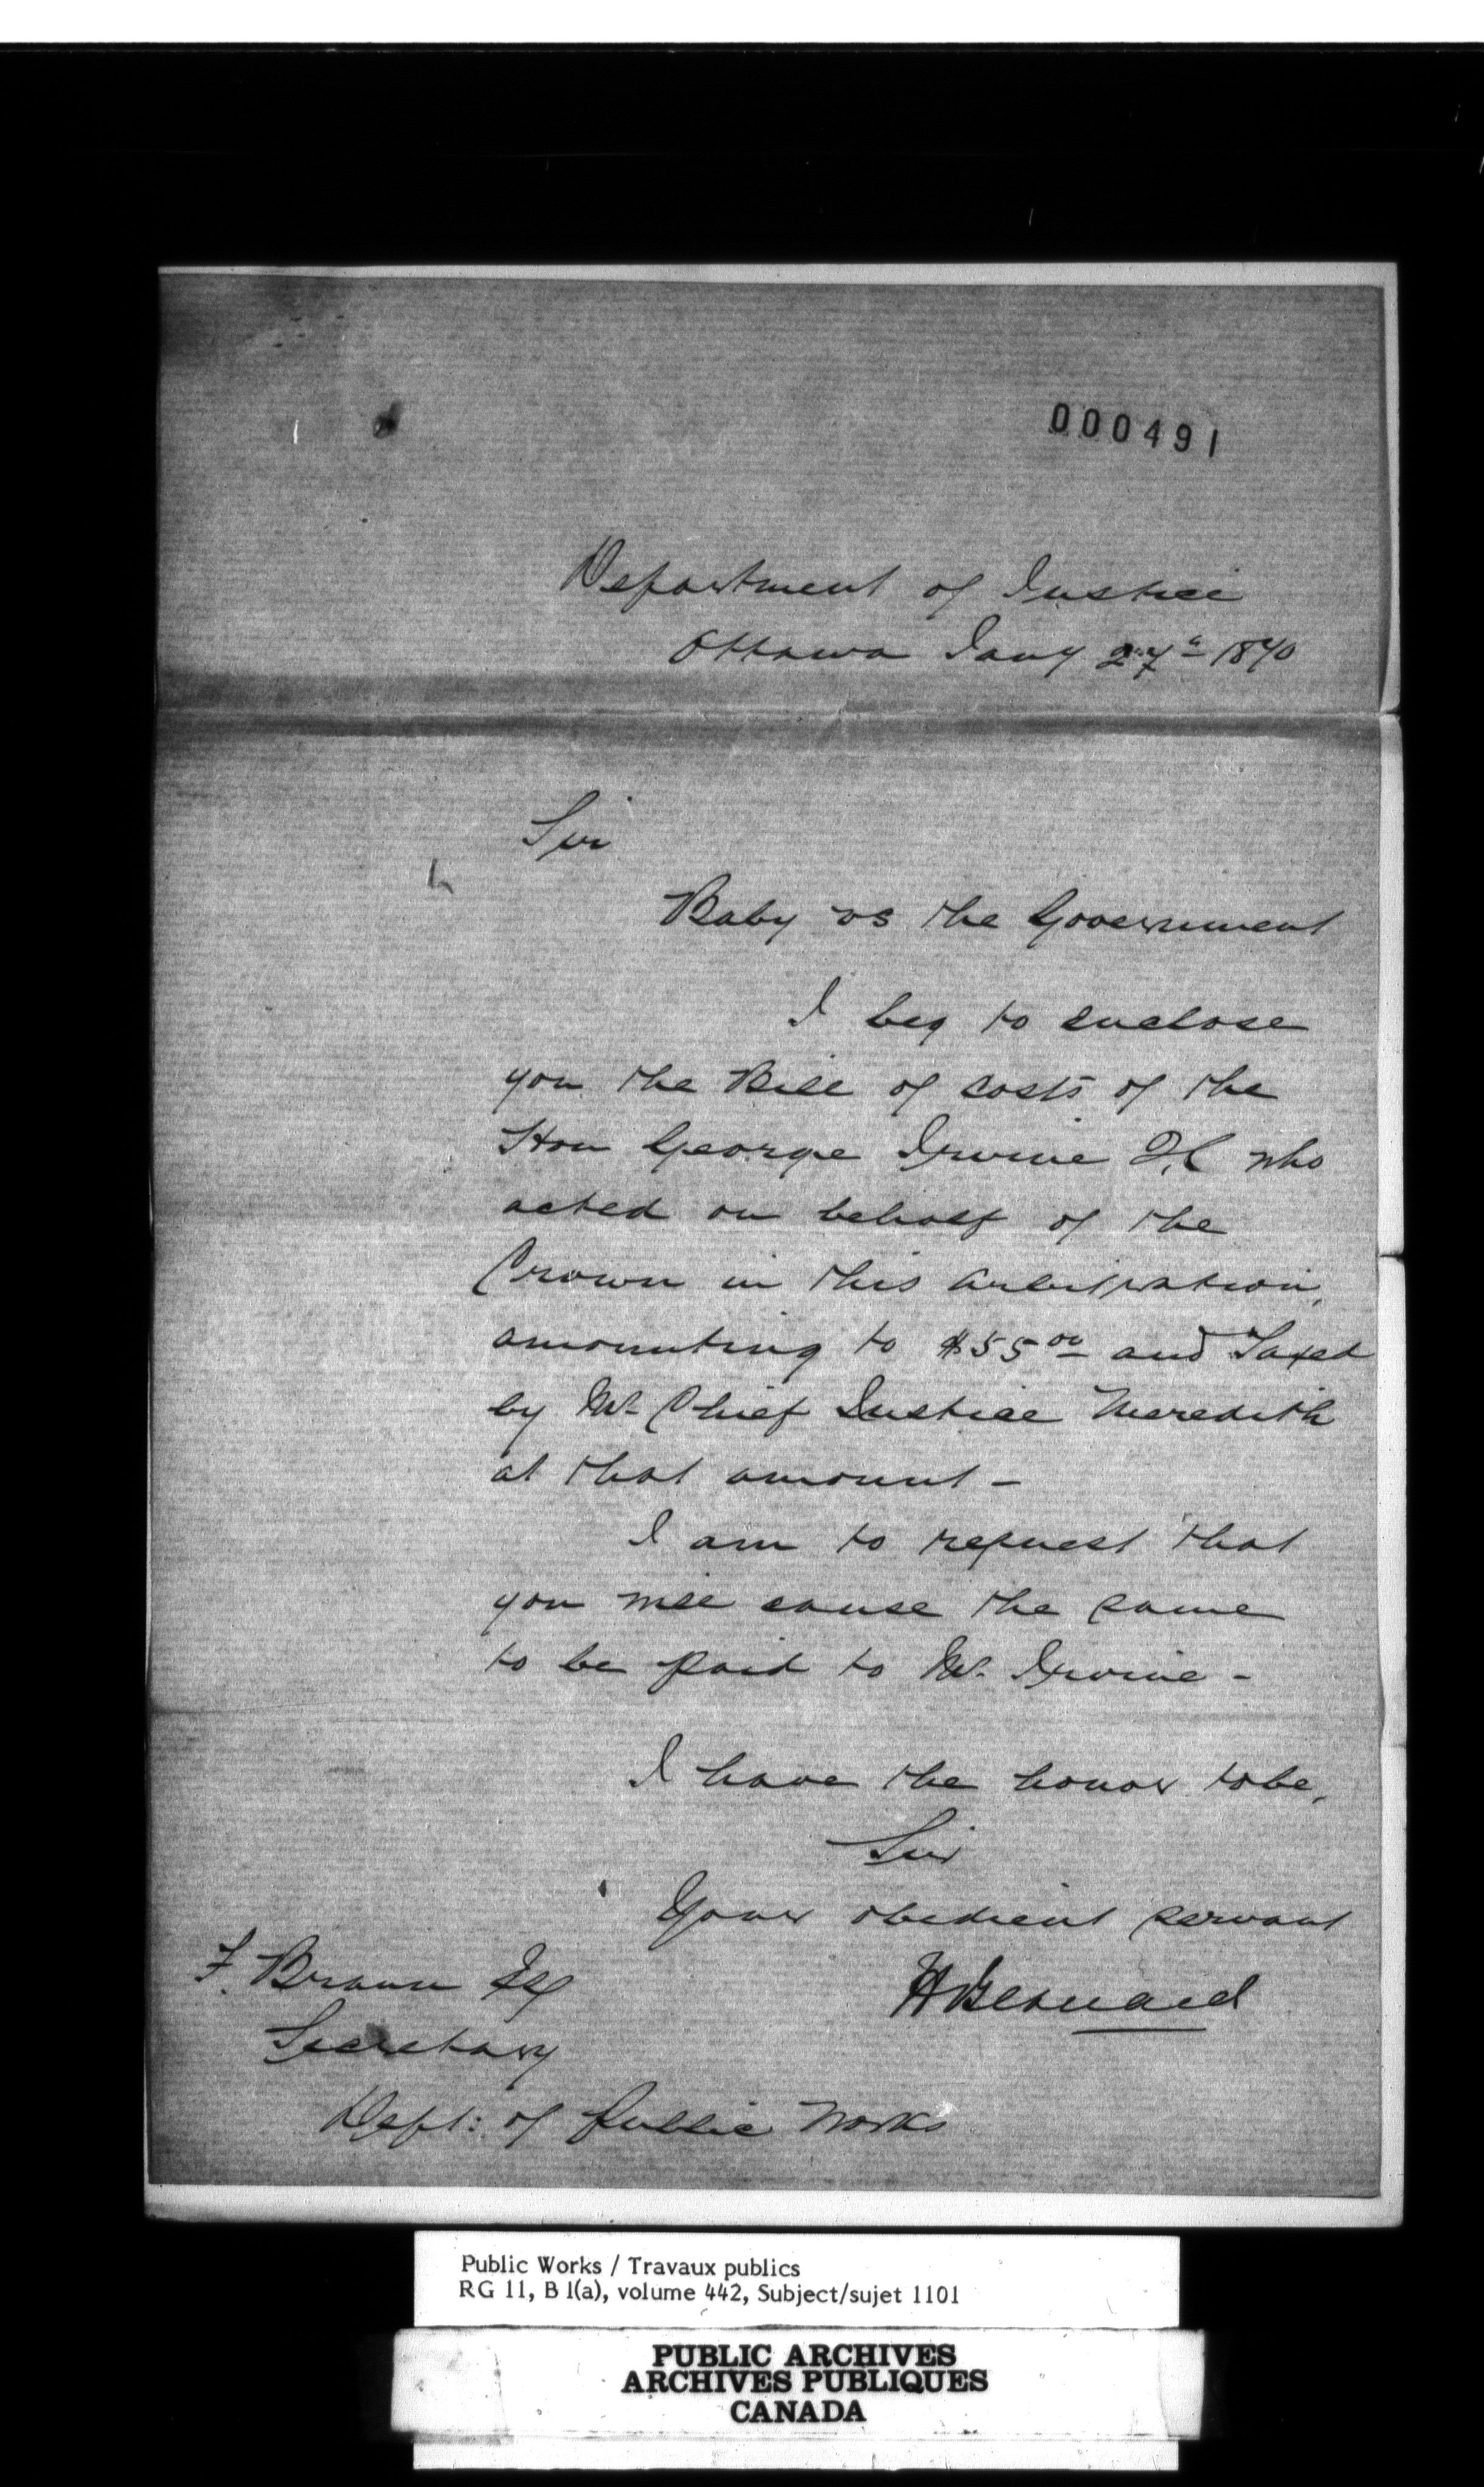 000491
Department of Justice
Ottawa Jany 27th 1870
Sir
Baby vs the Government
I beg to enclose
you the Bill of costs of the
Hon George Irvine Q.C who
acted on behalf of the
Crown in this arbitration,
amounting to $55.00 and Taxed
by Mr Chief Justice Meredith
at that amount -
I am to request that
you will cause the same
to be paid to Mr. Irvine -
I have the honor to be,
Sir
Your obedient servant
H Bernard
F. Braun Esq
Secretary
Dept: of Public Works
Public Works / Travaux publics
RG 11, B 1(a), volume 442, Subject/sujet 1101
PUBLIC ARCHIVES
ARCHIVES PUBLIQUES
CANADA